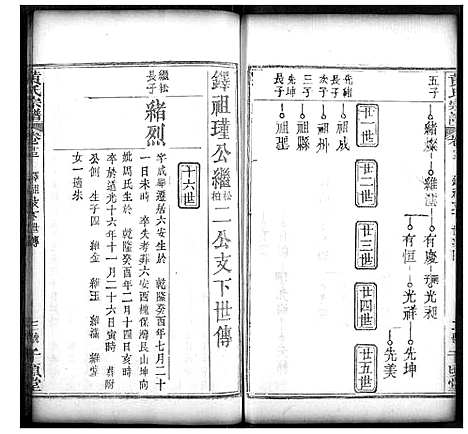 黄氏宗譜
卷三
五子
緒燦
維漢
有慶
有恒
光昶
光祥
先坤
先美
先緒長子
祖成
太子
祖州
祖縣
先坤長子
祖聖
廿一世
廿二世
廿三世
廿四世
廿五世
鐸祖瑾公繼松柏二公支下世傳
十六世
繼松長子
緒烈
字成聯遷居六安生於乾隆癸酉年七月二十
一日未時卒失考葬六安西槐保灣民山坤向
妣周氏生於乾隆癸酉年二月十四日亥時
卒於道光十六年十一月二十六日寅時
公側生子四維金維玉
女一適朱
黄氏宗譜
卷三
千頃堂